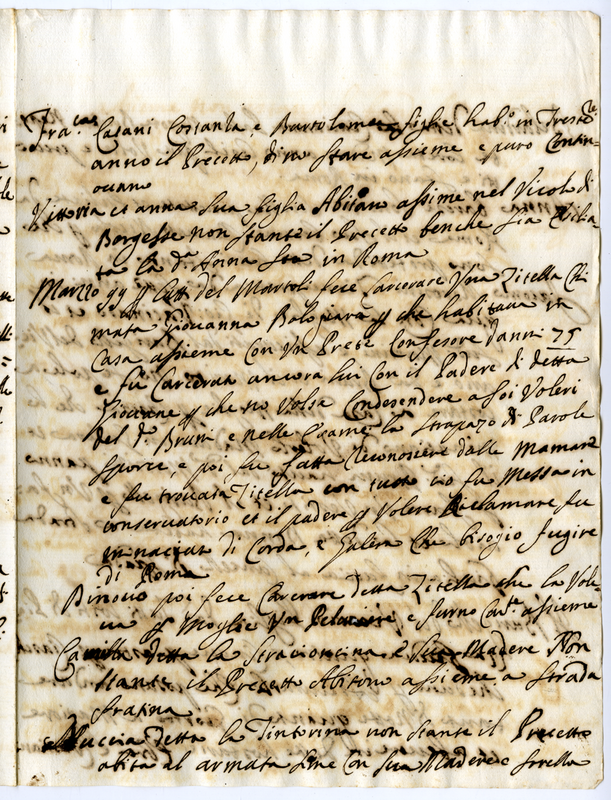 Fra.cas Casani Costanza, e Bartolomea figlie hab.o in Treste.re
anno il Precetto, di n stare assieme e puro Contin=
ouano
Vittoria et anna Sua figlia Abitano assime nel Vicolo di
Borgesse non stante il Precetto benche sia Esilia
ta la d.a Anna sta in Roma
Marzo 99 Att del Martoli fece Carcerare Una Zitella Chi
mata Giovanna Bolognara che habitava in
Casa assieme Con Un Prete Confesore d'anni 75
e fù Carcerata ancora lui Con il Padere di detta
Giovanne che nò Volse Condesendere a soi Voleri
del d.o Bruni e nelle Esame la strapazo di Parole
sporce, e poi fu fatta reconosiere dalle Mamane
e fu trovata Zitella con tutto cio fu Messa in
conservatorio et il padere Volere Reclamare, fu
minaciato di Corda, e Galera che bisogio fugire
di Roma
Di nouo poi fece Carcerare detta Zitella che la Vole
ua Moglie Un, e furno Car.te assieme
Camilla detta la Stracioncina e sua Madere Non
stante il Precetto Abitono assieme a strada
fratina
Nuccia detta la Tintorina non stante il Precetto
abita al armata sime Con sua Madere e sorella